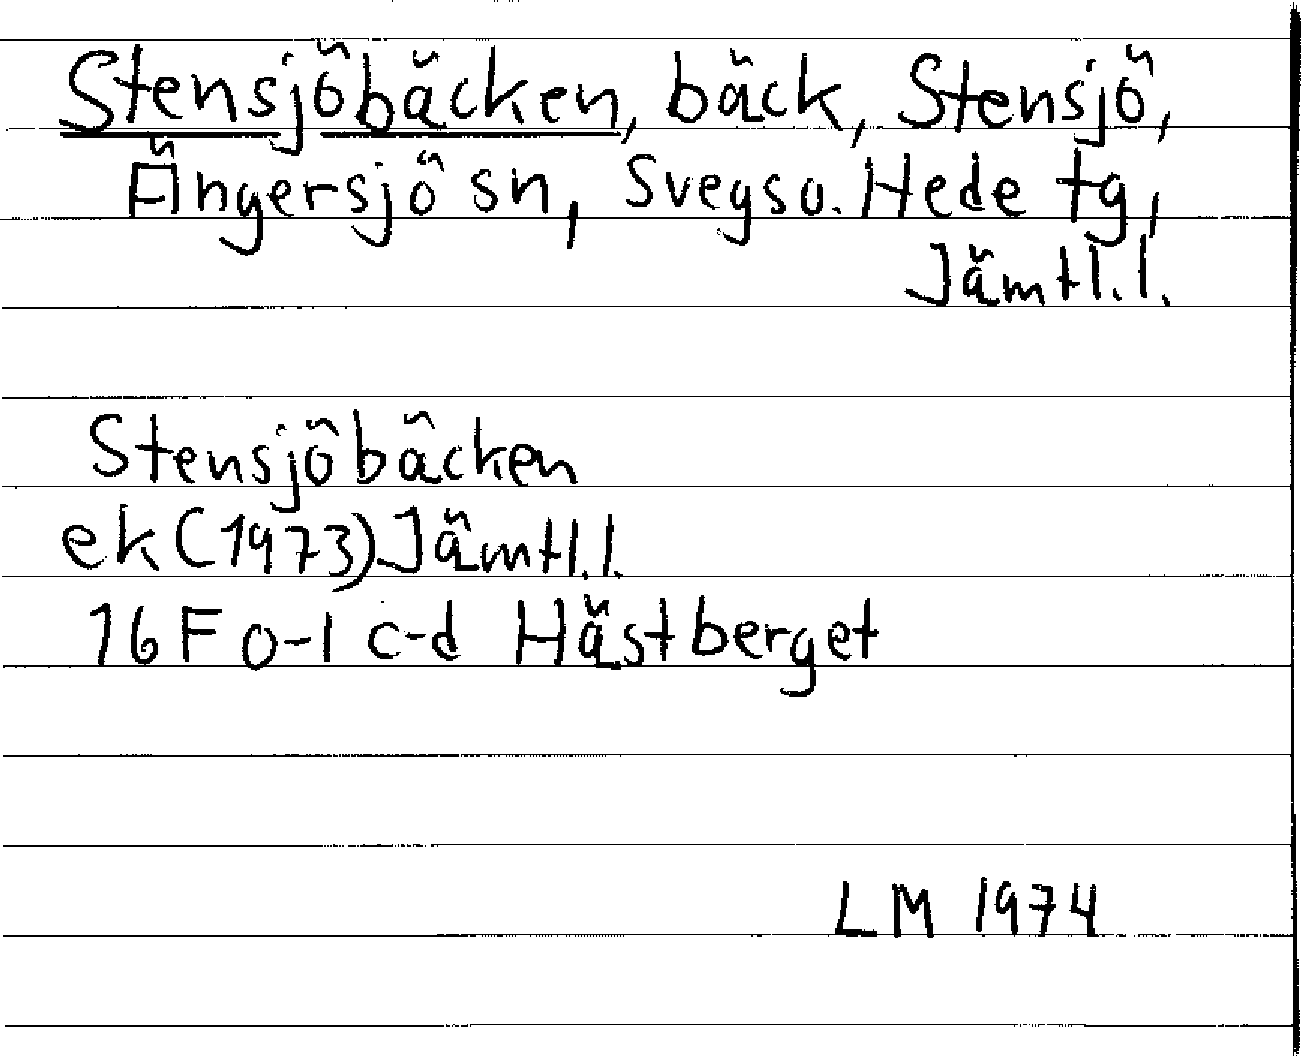 Stensjöbäcken, bäck, Stensjö,
Ängersjö sn, Svegs o. Hede tg,
Jämtl.l.
Stensjöbäcken
ek (1973) Jämtl.l.
16 F 0-1 c-d Hästberget
LM 1974